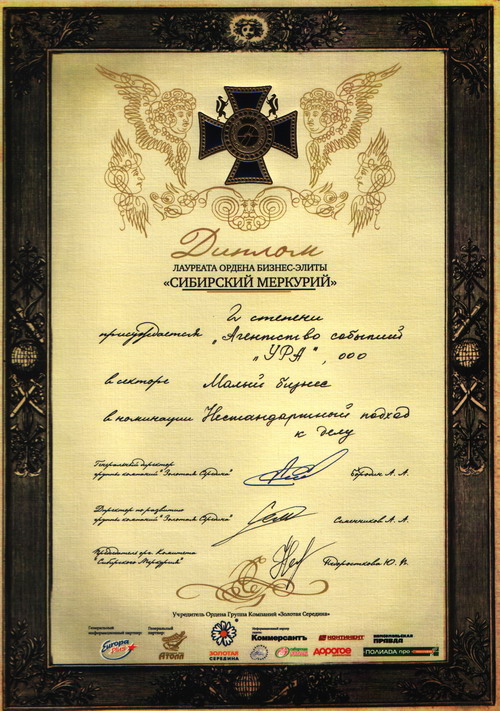 Диплом
ЛАУРЕАТА ОРДЕНА БИЗНЕС-ЭЛИТЫ
«СИБИРСКИЙ МЕРКУРИЙ»
2 степени
присуждается „Агентство событий
„УРА“, ООО
в секторе Малый бизнес
в номинации Нестандартный подход
к делу
Генеральный директор
группы компаний "Золотая Середина"
Бородин А. А.
Директор по развитию
группы компаний "Золотая Середина"
Семенников А. А.
Председатель орг. Комитета
"Сибирского Меркурия"
Учредитель Ордена Группа Компаний «Золотая Середина»
Генеральный
информационный партнер
Генеральный
партнер
Европа
АТОЛЛ
ЗОЛОТАЯ
СЕРЕДИНА
Коммерсантъ
КОНТИНЕНТ
КОМСОМОЛЬСКАЯ
ПРАВДА
дорогое
ПОЛИАДА про